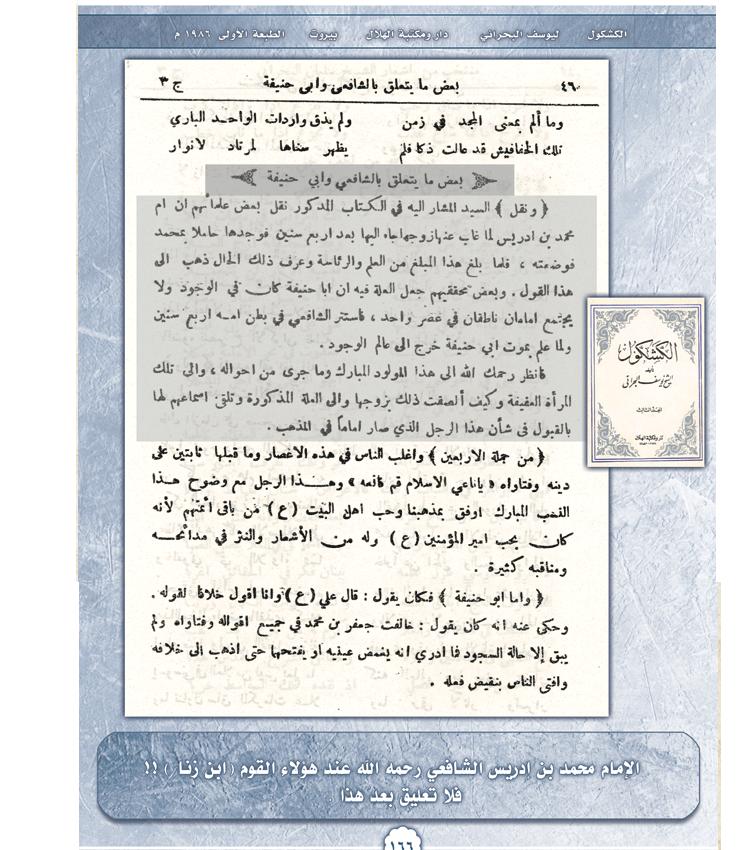 الكشكول ليوسف البحراني دار ومكتبة الهلال بيروت الطبعة الأولى ١٩٨٦ م
٤٦ بعض ما يتعلق بالشافعي وابي حنيفة ج ٣
وما ألم بمعنى المجد في زمن ولم يذق واردات الواحد الباري
تلك الخفافيش قد عالت ذكا فلم يظهر سناها لمرتاد لانوار
بعض ما يتعلق بالشافعي وابي حنيفة
﴿ ونقل ﴾ السيد المشار اليه في الكتاب المذكور نقل بعض علمائهم ان ام
محمد بن ادريس لما غاب عنها زوجها جاء اليها بعد اربع سنين فوجدها حاملا بمحمد
فوضعته ، فلما بلغ هذا المبلغ من العلم والرئاسة وعرف ذلك الحال ذهب الى
هذا القول . وبعض محققيهم جعل العلة فيه ان ابا حنيفة كان في الوجود ولا
يجتمع امامان ناطقان في عصر واحد ، فأستتر الشافعي في بطن امه اربع سنين
ولما علم بموت ابي حنيفة خرج الى عالم الوجود .
فأنظر رحمك الله الى هذا المولود المبارك وما جرى من احواله ، والى تلك
المرأة العفيفة وكيف ألصقت ذلك بزوجها والى العلة المذكورة وتلقي اسماعهم لها
بالقبول في شأن هذا الرجل الذي صار اماماً في المذهب .
﴿ من جملة الاربعين ﴾ واغلب الناس في هذه الاعصار وما قبلها ثابتين على
دينه وفتاواه « ياناعي الاسلام قم فانعه » وهذا الرجل مع وضوح هذا
النسب المبارك اوفق بمذهبنا وحب اهل البيت ( ع ) من باقي أئمتهم لأنه
كان يحب امير المؤمنين ( ع ) وله من الأشعار والنثر في مدائحه
ومناقبه كثيرة .
﴿ واما ابو حنيفة ﴾ فكان يقول : قال علي ( ع ) وانا اقول خلافا لقوله .
وحكي عنه انه كان يقول : خالفت جعفر بن محمد في جميع اقواله وفتاواه ولم
يبق إلا حالة السجود فما ادري انه يغمض عينيه او يفتحها حتى اذهب الى خلافه
وافتي الناس بنقيض فعله .
الكشكول
تأليف
الشيخ يوسف البحراني
المجلد الثالث
دار ومكتبة الهلال
الإمام محمد بن إدريس الشافعي رحمه الله عند هؤلاء القوم ( ابن زنا ) !!
فلا تعليق بعد هذا
١٦٦